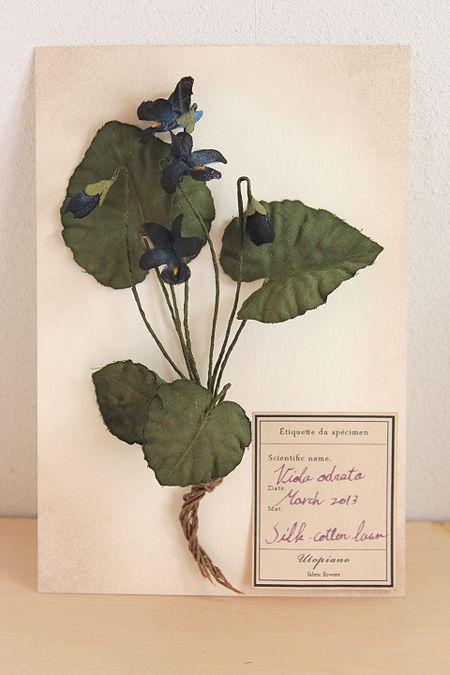 Étiquette du spécimen
Scientific name.
Viola odrata
Date.
March 2013
Mat.
Silk. cotton lawn
Utopiano
fabric flowers